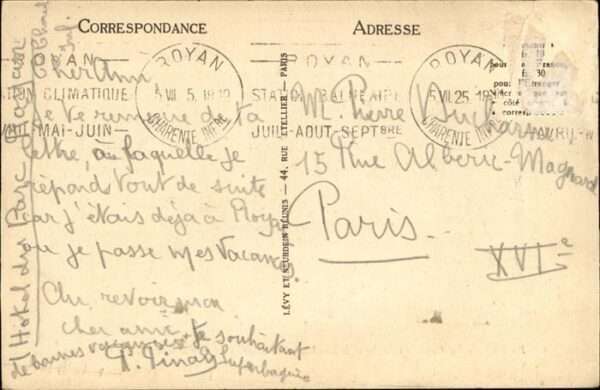 CORRESPONDANCE
ADRESSE
ROYAN
STATION CLIMATIQUE
MAI-JUIN
ROYAN
CHARENTE INFRE
ROYAN
STATION BALNEAIRE
JUIL-AOUT-SEPTBRE
ROYAN
5 VII 25
CHARENTE INFRE
Cher Ami
Je te remercie de ta
lettre à laquelle je
répond tout de suite
car j'étais déjà à Royan
ou je passe mes vacances.
Au revoir mon
cher ami et te souhaitant
de bonnes vacances
P. Pinas
Hotel du Parc Royan
LÉVY ET NEURDEIN RÉUNIS — 44, RUE LETELLIER — PARIS
M. Pierre
15 Rue Alberic-Magnard
Paris.
XVIe